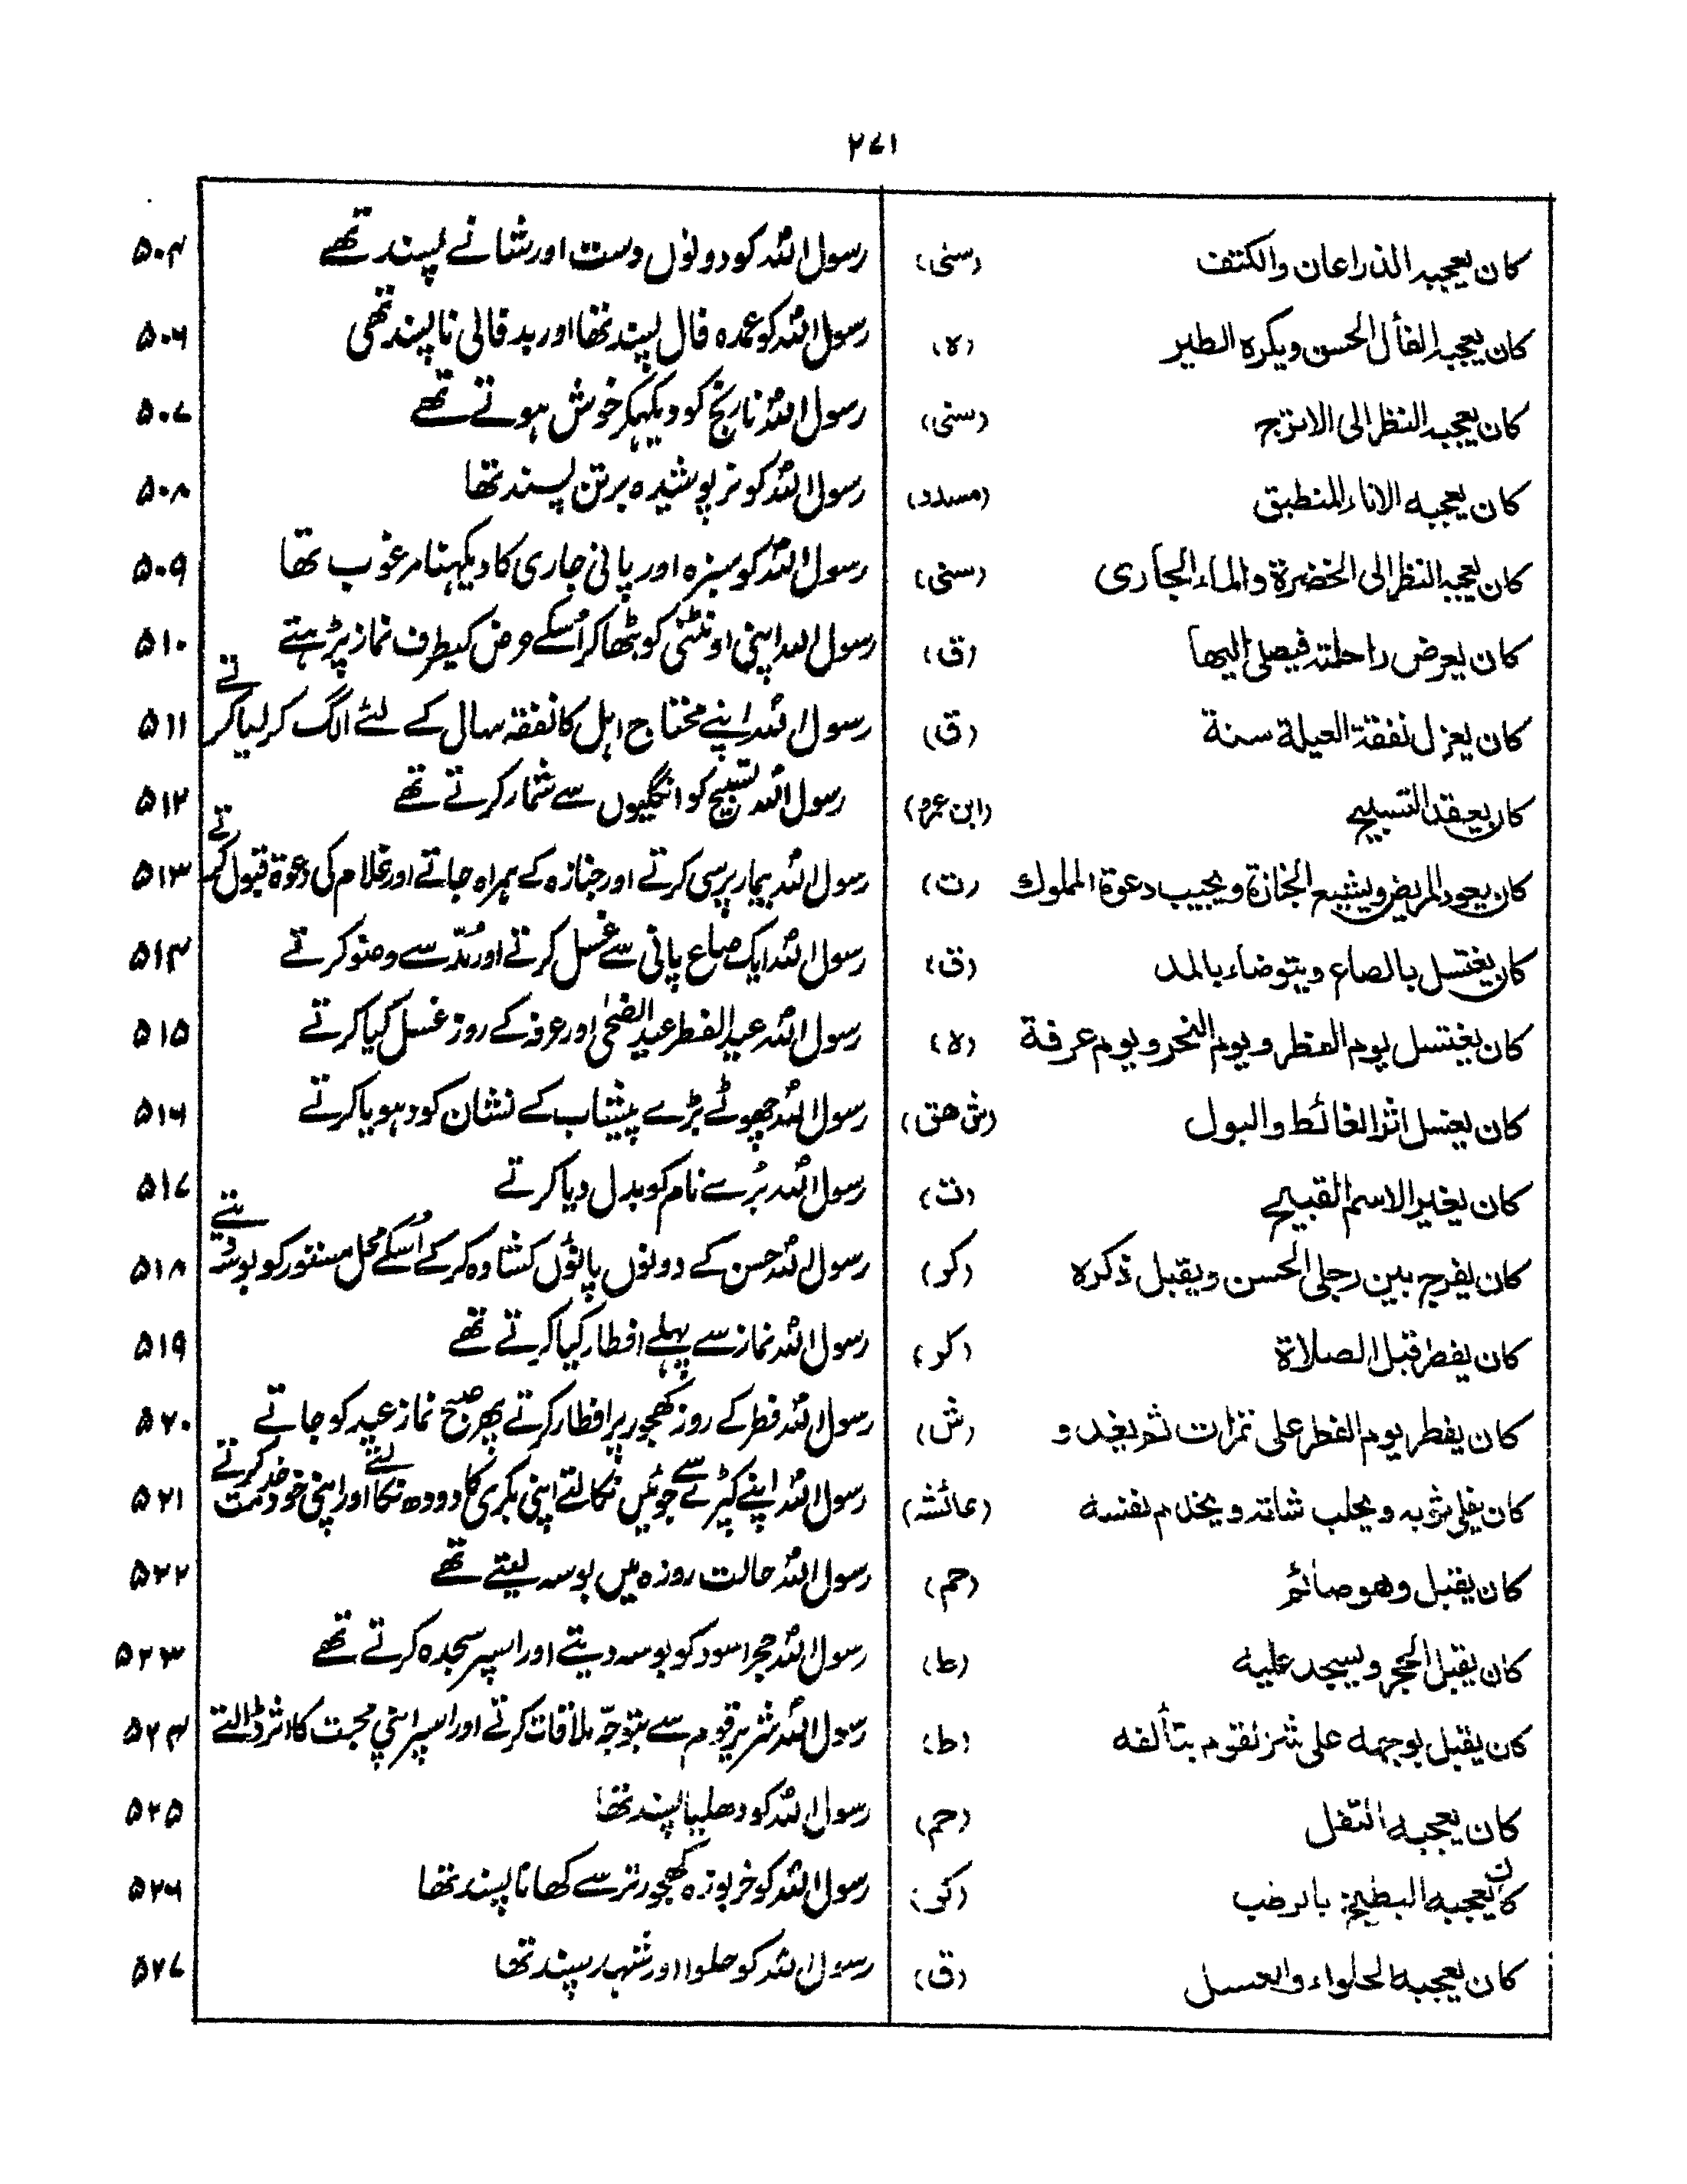 ۲۷۱
کان یعجبہ الذراعان والکتف (سنی) رسول اللہ کو دونوں دست اور شانے پسند تھے ۵۰۴
کان یعجبہ الفأل الحسن ویکرہ الطیر (لا) رسول اللہ کو عمدہ فال پسند تھا اور بد فالی ناپسند تھی ۵۰۶
کان یعجبہ النظر الی الاترج (سنی) رسول اللہ نارنج کو دیکہکر خوش ہوتے تھے ۵۰۷
کان یعجبہ الاناء المنطبق (مسدد) رسول اللہ کو سرپوشیدہ برتن پسند تھا ۵۰۸
کان یعجبہ النظر الی الخضرة والماء الجاری (سنی) رسول اللہ کو سبزہ اور پانی جاری کا دیکہنا مرغوب تھا ۵۰۹
کان یعرض راحلتہ فیصلی الیھا (ق) رسول اللہ اپنی اونٹنی کو بٹھا کر اُسکے عرض کیطرف نماز پڑہتے ۵۱۰
کان یعزل نفقة العیلة سنة (ق) رسول اللہ اپنے محتاج اہل کا نفقہ سال کے لئے الگ کر لیا کرتے ۵۱۱
کان یعقد التسبیح (ابن عمرو) رسول اللہ تسبیح کو انگلیوں سے شمار کرتے تھے ۵۱۲
کان یعود المریض ویشیع الجنازة ویجیب دعوة المملوك (ت) رسول اللہ بیمار پرسی کرتے اور جنازہ کے ہمراہ جاتے اور غلام کی دعوة قبول کرتے ۵۱۳
کان یغتسل بالصاع ویتوضاء بالمد (ق) رسول اللہ ایک صاع پانی سے غسل کرتے اور مُدّ سے وضو کرتے ۵۱۴
کان یغتسل یوم الفطر ویوم النحر ویوم عرفة (لا) رسول اللہ عید الفطر عید الضحٰی اور عرفہ کے روز غسل کیا کرتے ۵۱۵
کان یغسل اثر الغائط والبول (ش حق) رسول اللہ چھوٹے بڑے پیشاب کے نشان کو دہویا کرتے ۵۱۶
کان یغیر الاسم القبیح (ت) رسول اللہ بُرے نام کو بدل دیا کرتے ۵۱۷
کان یفرج بین رجلی الحسن ویقبل ذکرہ (کر) رسول اللہ حسن کے دونوں پانؤں کشادہ کرکے اُسکے محل مستور کو بوسہ دیتے ۵۱۸
کان یفطر قبل الصلاة (کر) رسول اللہ نماز سے پہلے افطار کیا کرتے تھے ۵۱۹
کان یفطر یوم الفطر علی تمرات ثم یغدو (ش) رسول اللہ فطر کے روز کھجور پر افطار کرتے پھر صبح نماز عید کو جاتے ۵۲۰
کان یفلی ثوبہ ویحلب شاتہ ویخدم نفسہ (عائشہ) رسول اللہ اپنے کپڑے سے جوئیں نکالتے اپنی بکری کا دودھ نکالتے اور اپنی خود خدمت کرتے ۵۲۱
کان یقبل وھو صائم (حم) رسول اللہ حالت روزہ میں بوسہ لیتے تھے ۵۲۲
کان یقبل الحجر ویسجد علیہ (ط) رسول اللہ حجر اسود کو بوسہ دیتے اور اسپر سجدہ کرتے تھے ۵۲۳
کان یقبل بوجھہ علی شر القوم یتألفہ (ط) رسول اللہ شریر قوم سے بتوجّہ ملاقات کرتے اور اسپر اپنی محبت کا اثر ڈالتے ۵۲۴
کان یعجبہ الثفل (حم) رسول اللہ کو دھلیا پسند تھا ۵۲۵
کان یعجبہ البطیخ بالرطب (کر) رسول اللہ کو خربوزہ کھجور تر سے کھانا پسند تھا ۵۲۶
کان یعجبہ الحلواء والعسل (ق) رسول اللہ کو حلوا اور شہد پسند تھا ۵۲۷